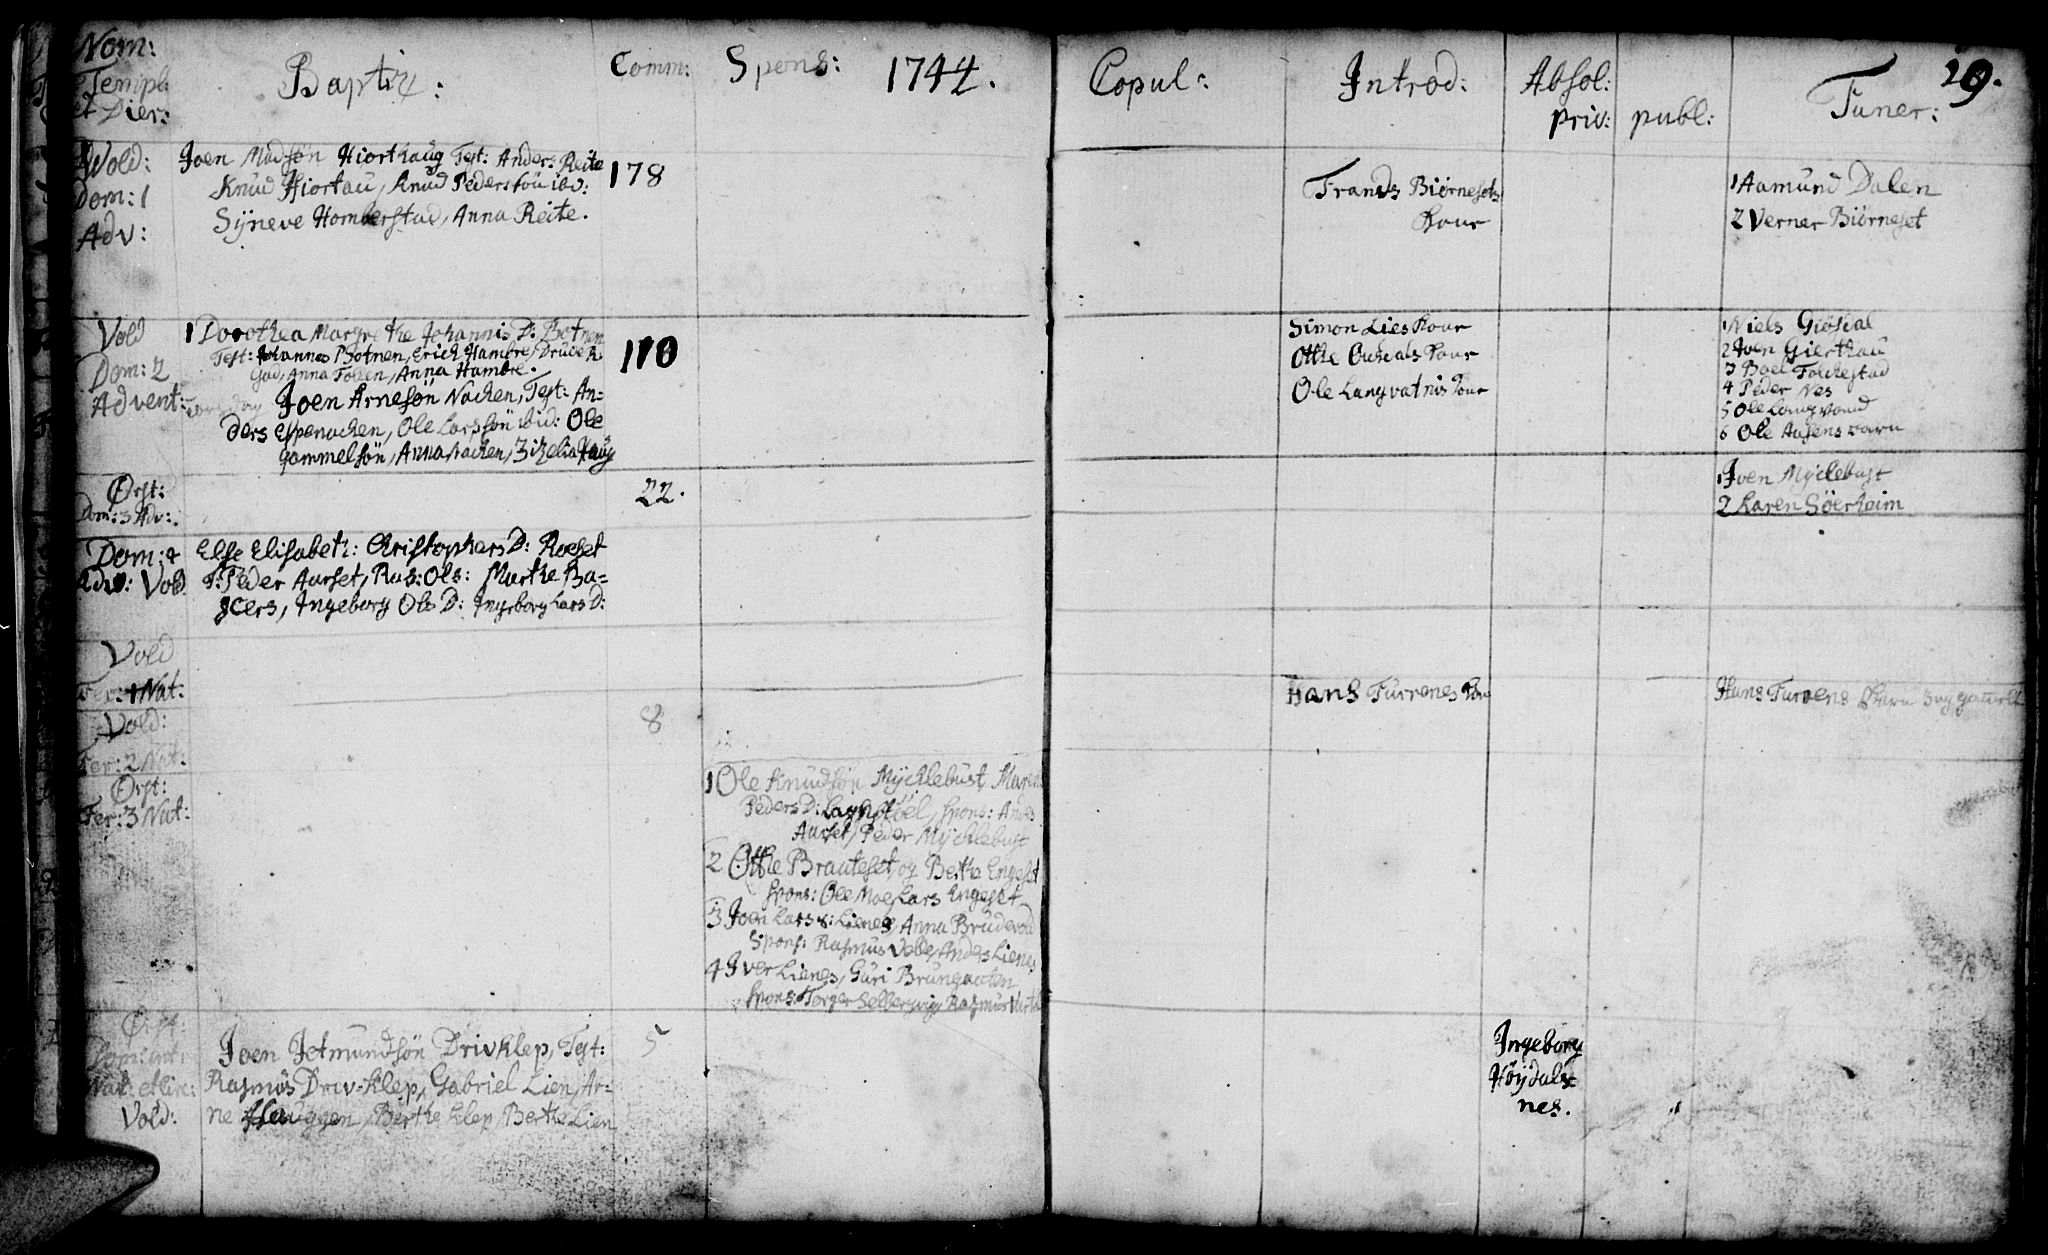 Nom:
Templ:
et Dier:
Baptiz:
Comm:
Spons:
1744.
Copul:
Introd:
Absol:
priv:
publ:
Funer:
19.
Wold:
Dom: 1
Adv:
Joen Madsøn Hiorthaug Test: Anders Reite
Knud Hiortau, Knud Pedersøn ibd:
Syneve Homberstad, Anna Reite.
178
Frands Biørnesets
Kone
1 Aamund Dalen
2 Verner Biørneset
Vold
Dom: 2
Advent:
1 Dorothea Margrethe Johannis D: Botnen
Test: Johannes Botnen, Erich Hambre,
Gad, Anna Folien, Anna Hambre.
Joen Arnesøn Nachen, Test: An-
ders Espenachen, Ole Larssøn ibid: Ole
Gammelsøn, Anna Nachen, Zizelia Haug
110
Simon Lies Kone
Otthe Kone
Ole Langvatnis Kone
1 Niels Giøsdal
2 Joen Gierthau
3 Boel Folchestad
4 Peder Nes
5 Ole Langvand
6 Ole Aasens barn
Ørst:
Dom: 3 Adv:
22.
1 Joen Myclebust
2 Karen Søerheim
Dom: 4
Adv: Vold
Else Elisabet: Christophers D: Roeset
T: Peder Aurset, Ras: Ols: Marthe Ba-
gers, Ingeborg Ols D: Ingeborg Lars D:
Vold
Fer: 1 Nat:
Hans Furrenes Kone
Hans Furrens barn
Vold:
Fer: 2 Nat:
8
Ørst:
Fer: 3 Nat:
1 Ole Knudsøn Mychlebust, Maren
Peders D: spons: Anders
Aurset, Peder Mychlebust
2 Otthe Brauteset, og Berthe Engeset
spons: Ole Moe, Lars Engeset
3 Joen Larss: Lienes, Anna Brudevold
Spons: Rasmus Velle, Anders Lienes
4 Iver Lienes, Guri Brungaaten
spons: Torger Rasmus
Ørst:
Vold:
Joen Jetmundsøn Drivklep, Test:
Rasmus Driv-klep, Gabriel Lien, Ar-
ne Hauggen, Berthe Klep, Berthe Lien
5
Ingeborg
Høydals-
nes.